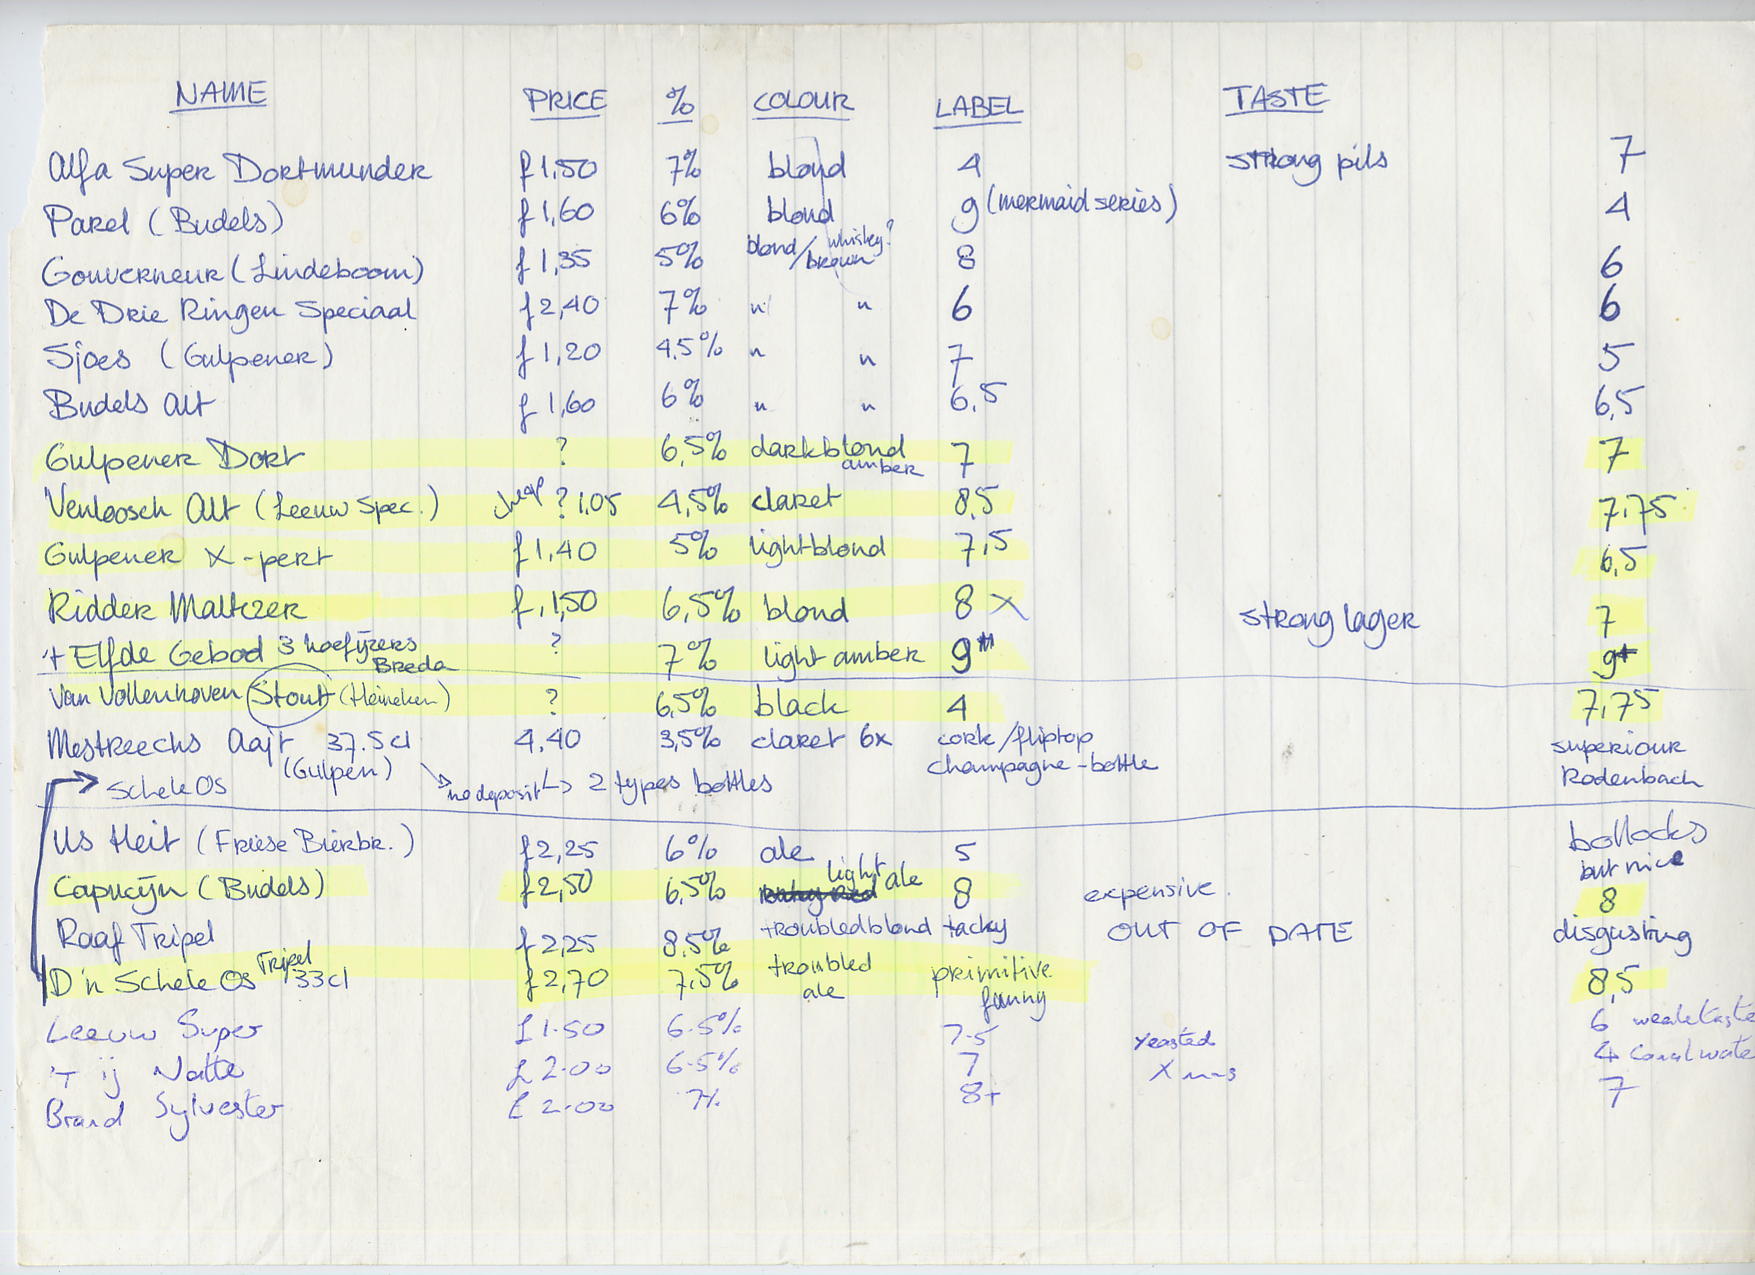 NAME PRICE % COLOUR LABEL TASTE
Alfa Super Dortmunder f 1,50 7% blond 4 strong pils 7
Parel (Budels) f 1,60 6% blond 9 (mermaid series) 4
Gouverneur (Lindeboom) f 1,35 5% blond/brown whiskey? 8 6
De Drie Ringen Speciaal f 2,40 7% " " 6 6
Sjoes (Gulpener) f 1,20 4,5% " " 7 5
Budels Alt f 1,60 6% " " 6,5 6,5
Gulpener Dort ? 6,5% darkblond amber 7 7
Venloosch Alt (Leeuw Spec.) ? 1,05 4,5% claret 8,5 7,75
Gulpener X-pert f 1,40 5% lightblond 7,5 6,5
Ridder Maltezer f 1,50 6,5% blond 8 X strong lager 7
+ Elfde Gebod 3 hoefijzers Breda ? 7% light amber 9 9+
Van Vollenhoven Stout (Heineken) ? 6,5% black 4 7,75
Mestreechs Aajt 37.5cl 4,40 3,5% claret 6x cork/fliptop superiour
(Gulpen) champagne-bottle Rodenbach
Schele Os no deposit 2 types bottles
Us Heit (Friese Bierbr.) f 2,25 6% ale 5 bollocks but nice
Capucijn (Budels) f 2,50 6,5% light ale 8 expensive. 8
Raaf Tripel f 2,25 8,5% troubledblond tacky OUT OF DATE disgusting
D'n Schele Os Tripel 33cl f 2,70 7,5% troubled ale primitive funny 8,5
Leeuw Super £ 1.50 6.5% 7.5 6 weak taste
'T ij Natte £ 2.00 6.5% 7 yeasted 4 canal water
Brand Sylvester £ 2.00 7% 8+ Xmas 7